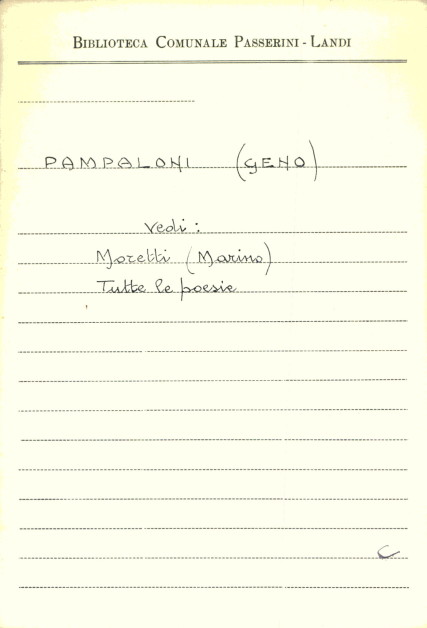 BIBLIOTECA COMUNALE PASSERINI - LANDI
PAMPALONI (GENO)
Vedi:
Moretti (Marino)
Tutte le poesie
C